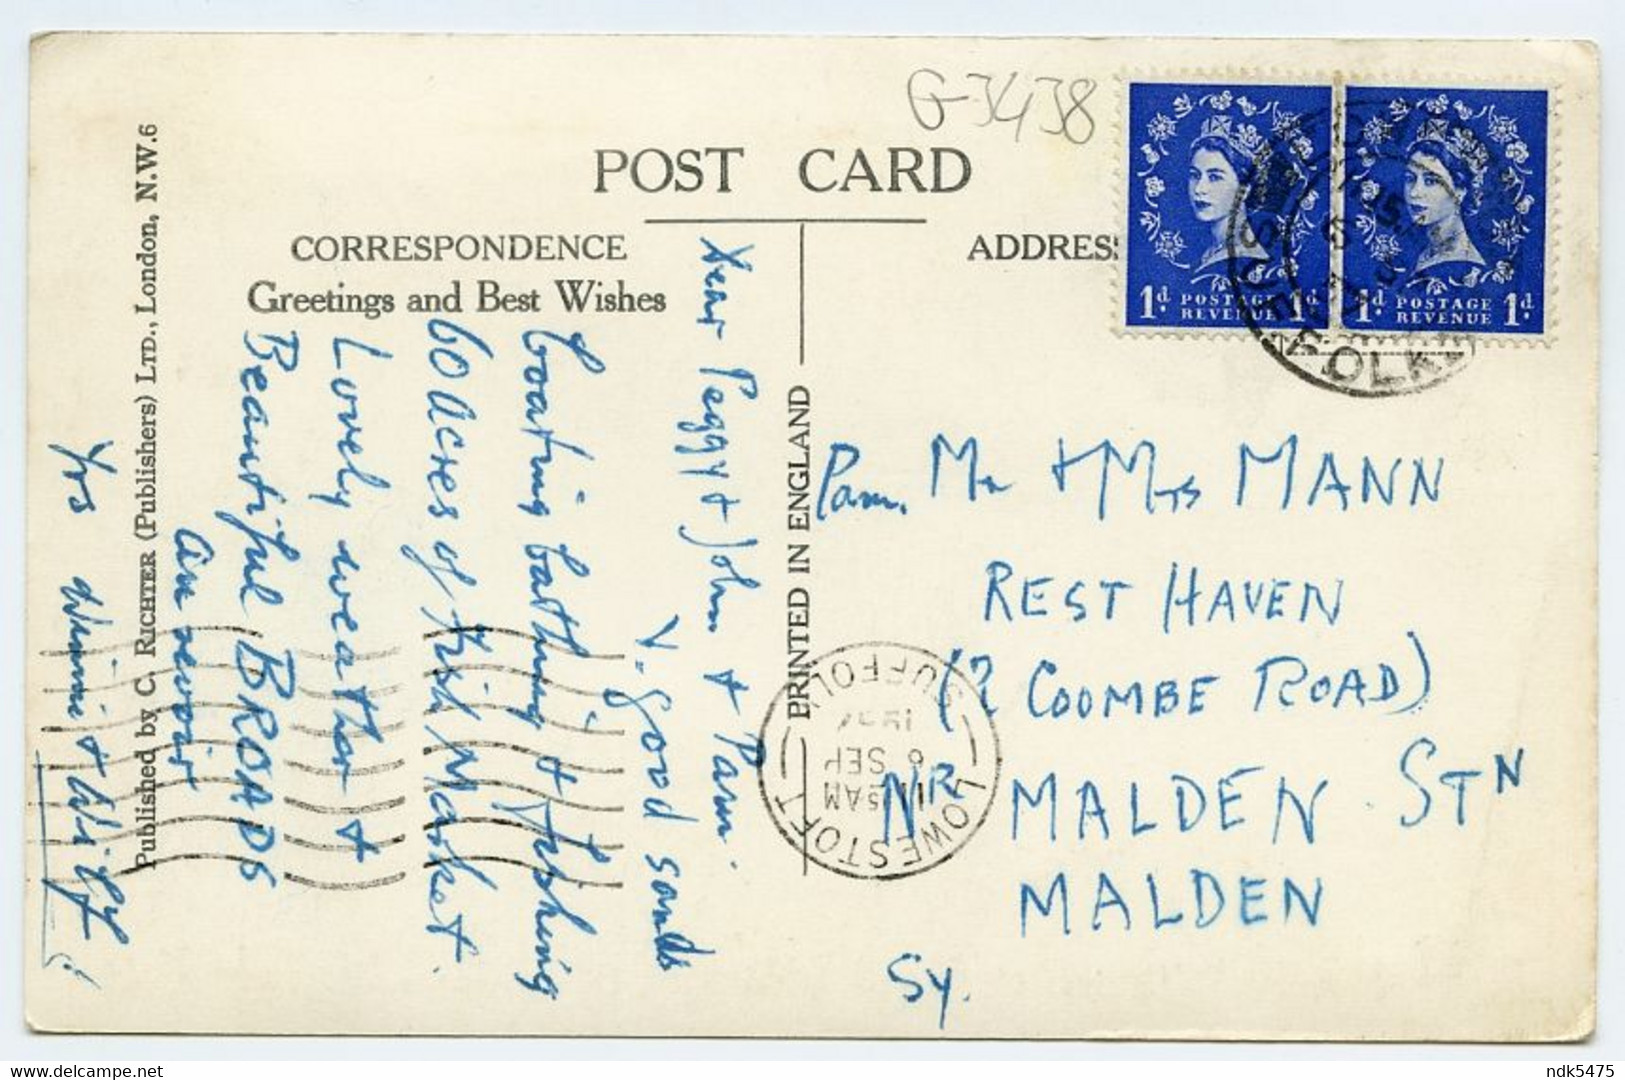 G-3438
POST CARD
CORRESPONDENCE
Greetings and Best Wishes
ADDRESS
1d POSTAGE REVENUE 1d
1d POSTAGE REVENUE 1d.
SUFFOLK
Dear Peggy & John & Pam.
V. good sands
boating bathing & Fishing
60 Acres of Fish Market.
Lovely weather &
Beautiful BROADS
Au revoir
Yrs Winnie & Wilf
Pam. Mr & Mrs MANN
REST HAVEN
(2 COOMBE ROAD)
NR MALDEN STN
MALDEN
SY.
LOWESTOFT
SUFFOLK
11 15AM
6 SEP
195
PRINTED IN ENGLAND
Published by C. RICHTER (Publishers) LTD., London, N.W.6
delcampe.net
ndk5475